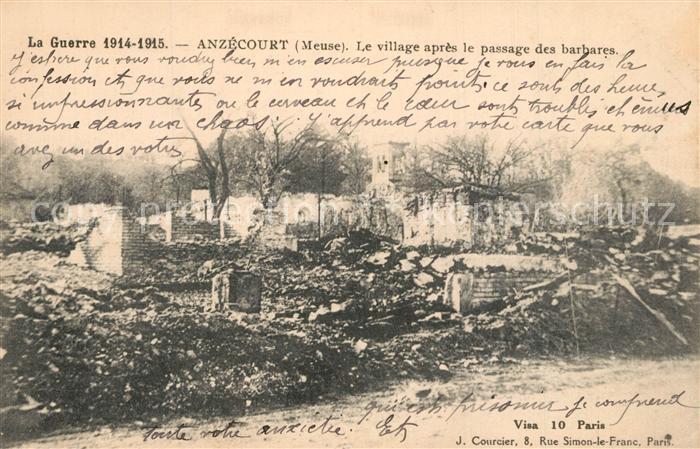 La Guerre 1914-1915. — ANZÉCOURT (Meuse). Le village après le passage des barbares.
j'espère que vous voudrez bien m'en escuser puisque je vous en fais la
confession et que vous ne m'en voudrais point: ce sont des heures
si impressionnantes ou le cerveau et le cœur sont troublés et émues
comme dans un chaos. J'apprend par votre carte que vous
avez un des votres
qui est prisonier. Je comprend
toute votre anxiétié. Et
Copyright ansichtskarten-lexikon hartenbach & schutz
Visa 10 Paris
J. Courcier, 8, Rue Simon-le-Franc, Paris.